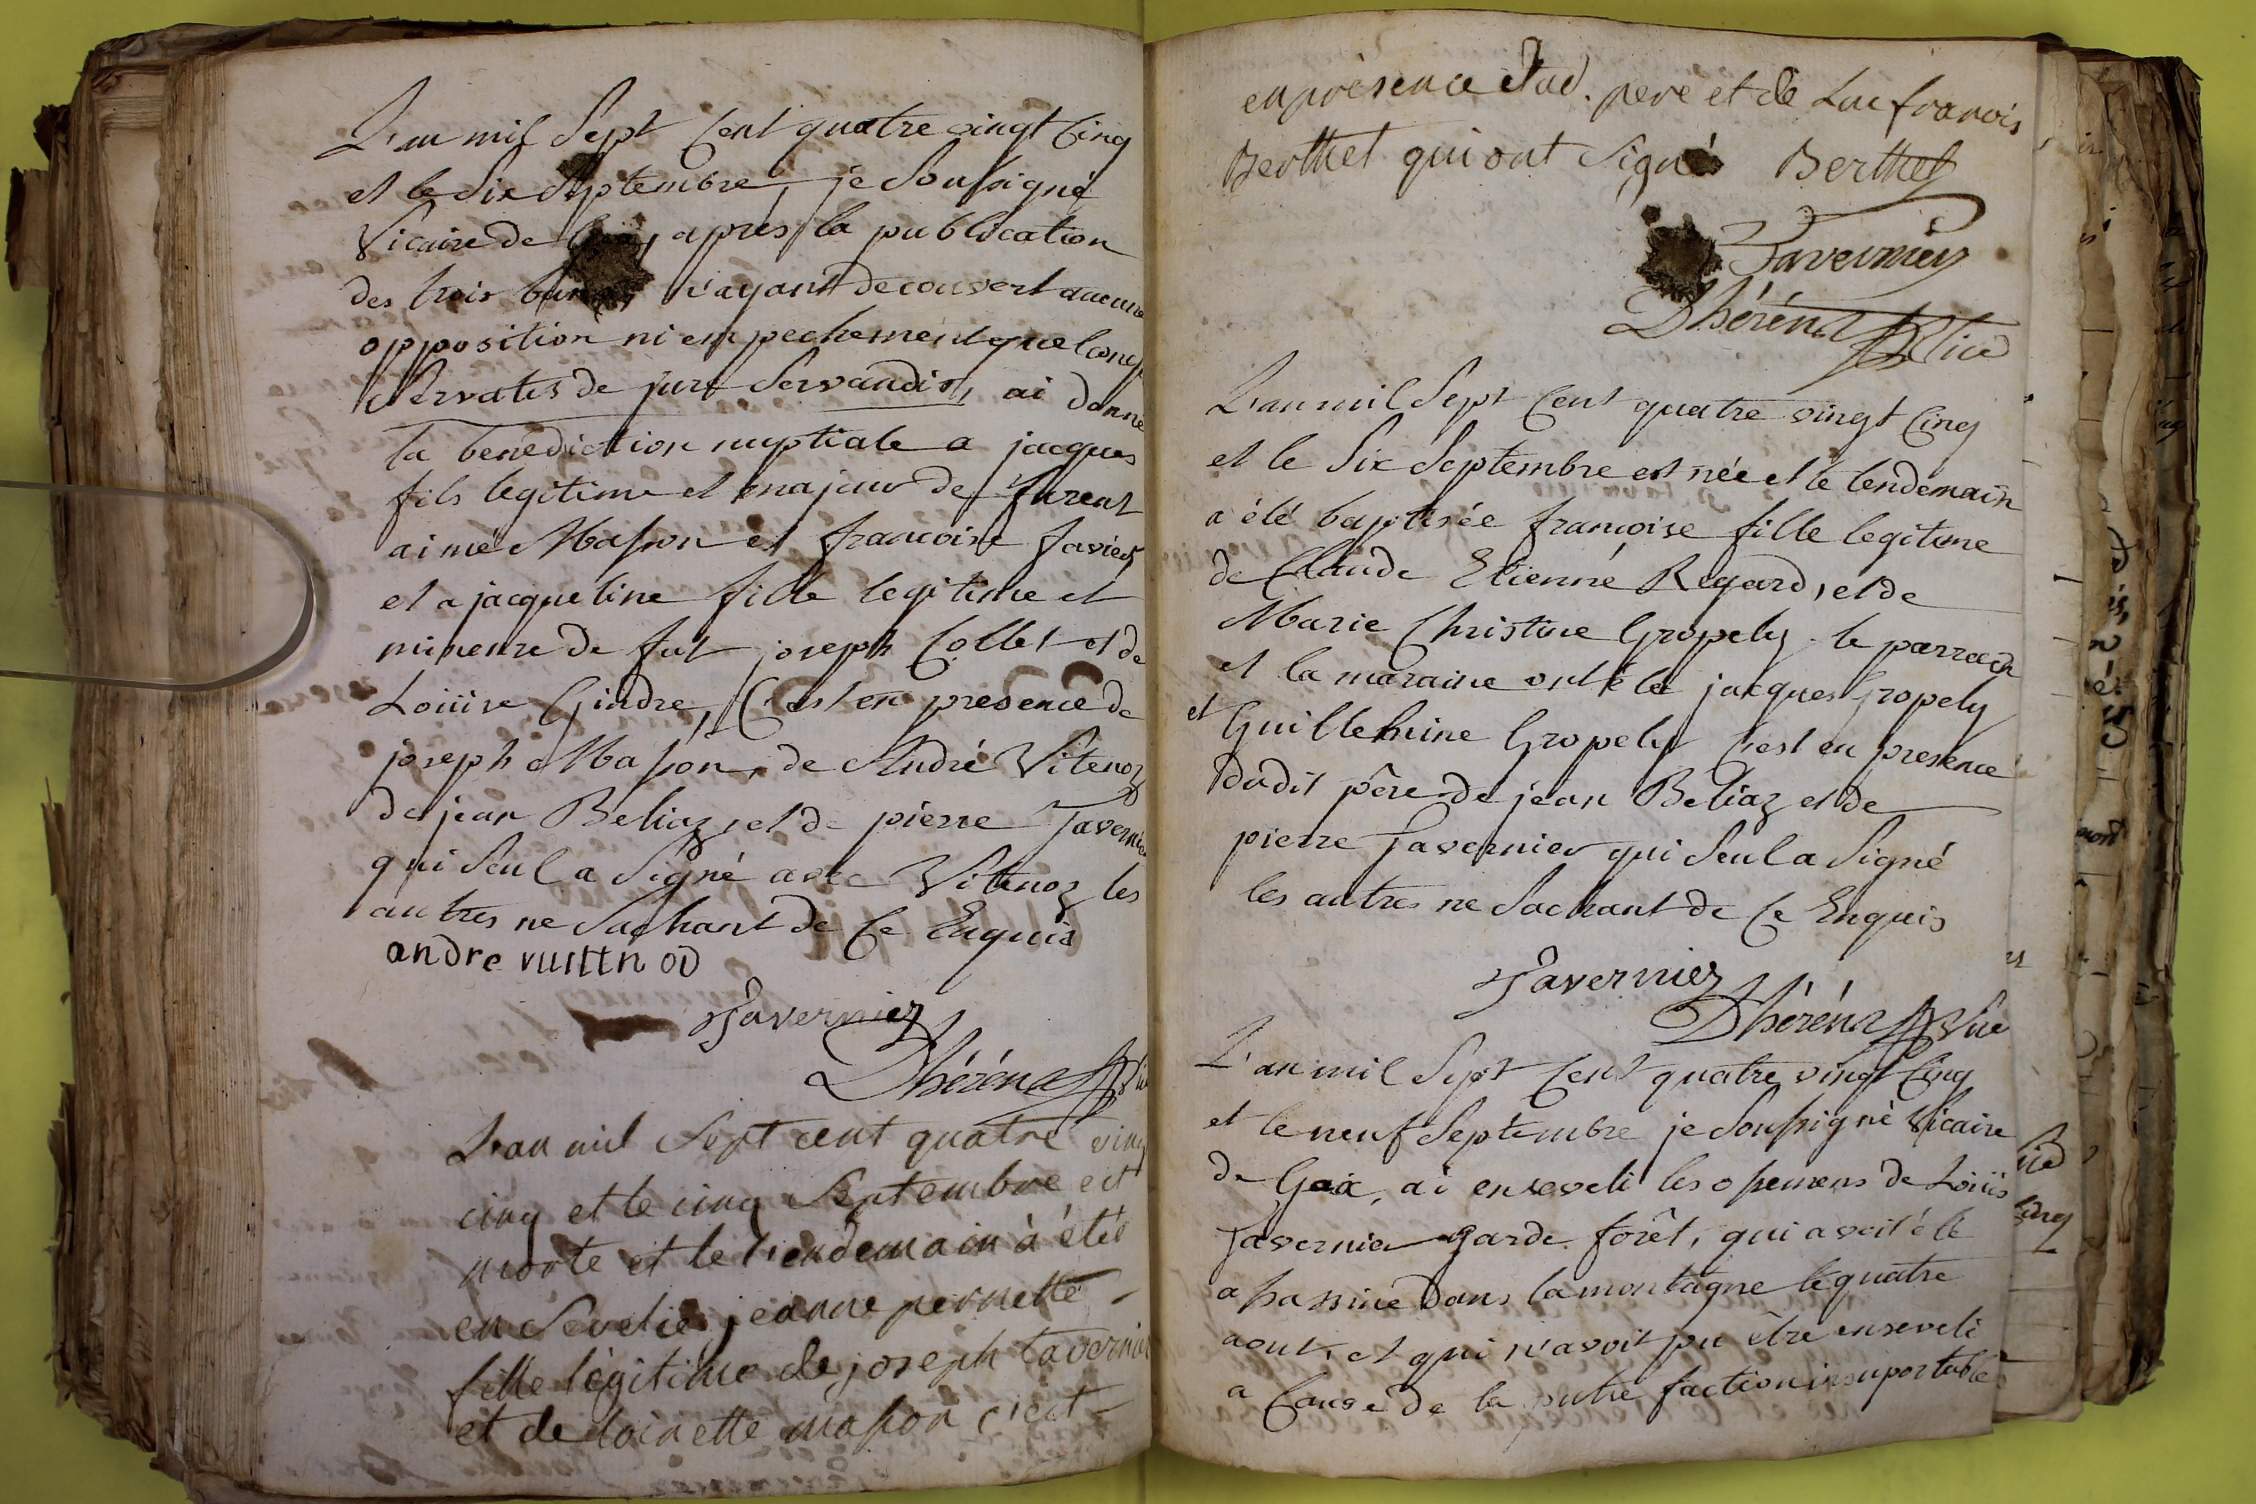 L'an mil Sept Cent quatre vingt Cinq
et le Six Septembre, je Soussigné
Vicaire de Gex, après la publication
des trois bans, n'ayant decouvert aucune
opposition ni empechement quelconq
Servatis de jure Servandis, ai donné
la benediction nuptiale a jacques
fils legitime et majeur de furent
aimé Masson et francoise
et a jacqueline fille legitime et
mineure de fut joseph Collet et de
Loüise Gindre, C'est en presence de
joseph Masson, de André Vitenoz
de jean Beliaz, et de pierre Tavernier
qui Seul a Signé avec Vittenoz les
autres ne Sachant de Ce Enquis
andre vuittnod
Tavernier
Dhéréna Vic
L'an mil Sept cent quatre ving
cinq et le cinq Septembre est
morte et le l'endemain à étée
en Sevelie jeanne pernette
fille légitime de joseph tavernier
et de toinette masson c'est
en présence dud. pere et de Luc francois
Berthet qui ont Signés Berthet
Tavernier
Dhéréna Vice
L'an mil Sept Cent quatre vingt Cinq
et le Six Septembre est née et le lendemain
a été baptisée francoise fille legitime
de Claude Etienne Regard, et de
Marie Christine Gropely. le parrain
et la maraine ont été jacques Gropely
et Guillelmine Gropely C'est en presence
dudit père de jean Beliaz et de
pierre Tavernier qui Seul a Signé
les autres ne Sachant de Ce Enquis
Tavernier
Dhéréna Vice
L'an mil Sept Cent quatre vingt Cinq
et le neuf Septembre je Soussigné Vicaire
de Gex, ai enseveli les ossemens de Loüis
Tavernier garde forêt, qui avoit été
assassiné dans la montagne le quatre
aout, et qui n'avoit pu être enseveli
a Cause de la putréfaction insuportable